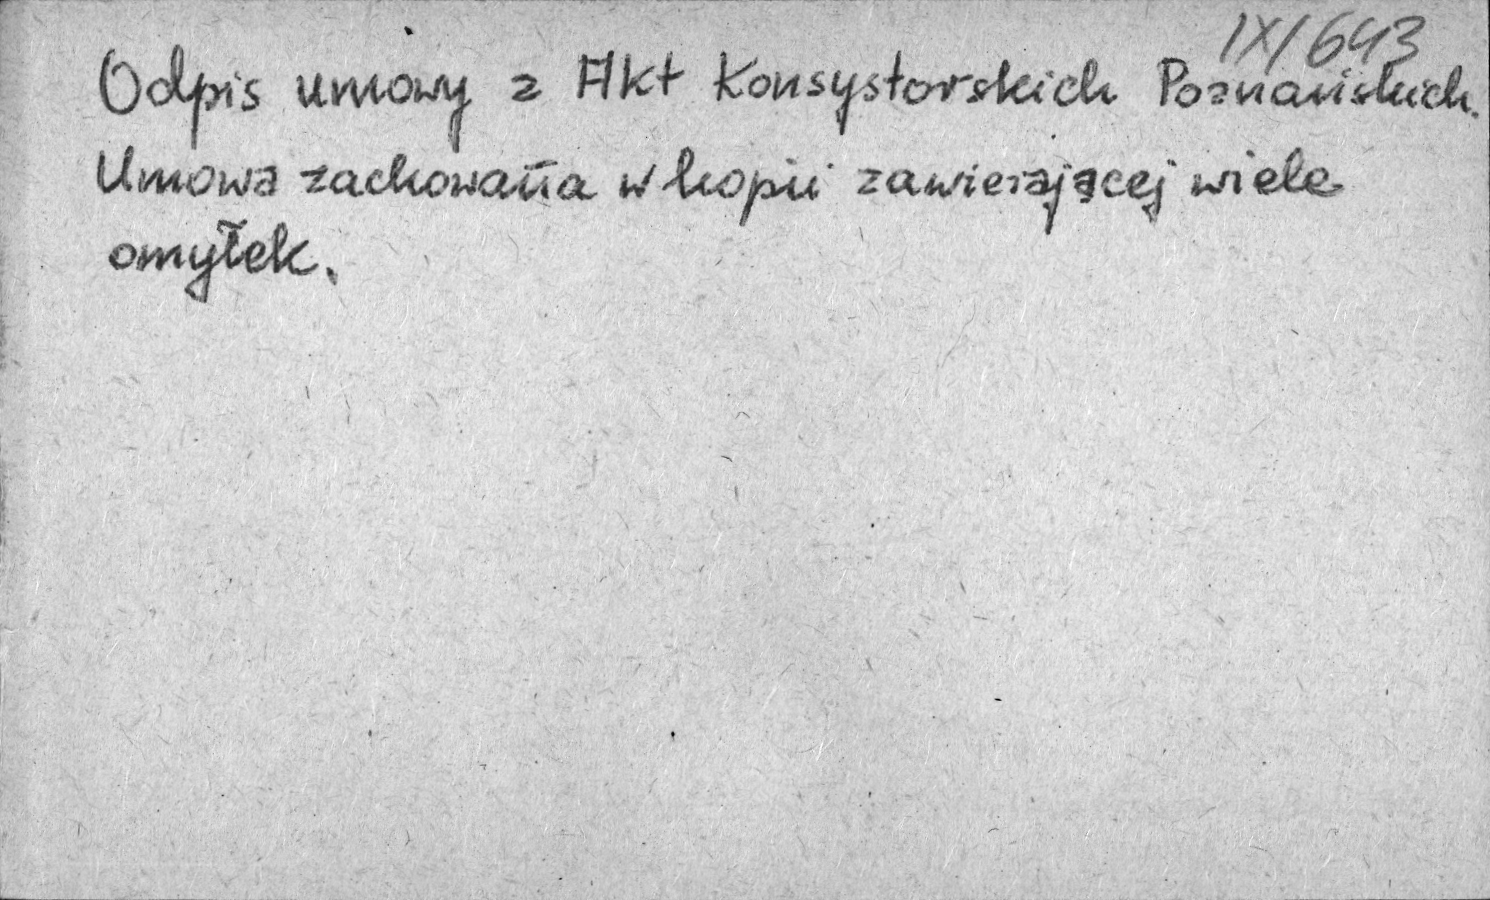 IX/643
Odpis umowy z Akt Konsystorskich Poznańskich.
Umowa zachowana w kopii zawierającej wiele
omyłek.